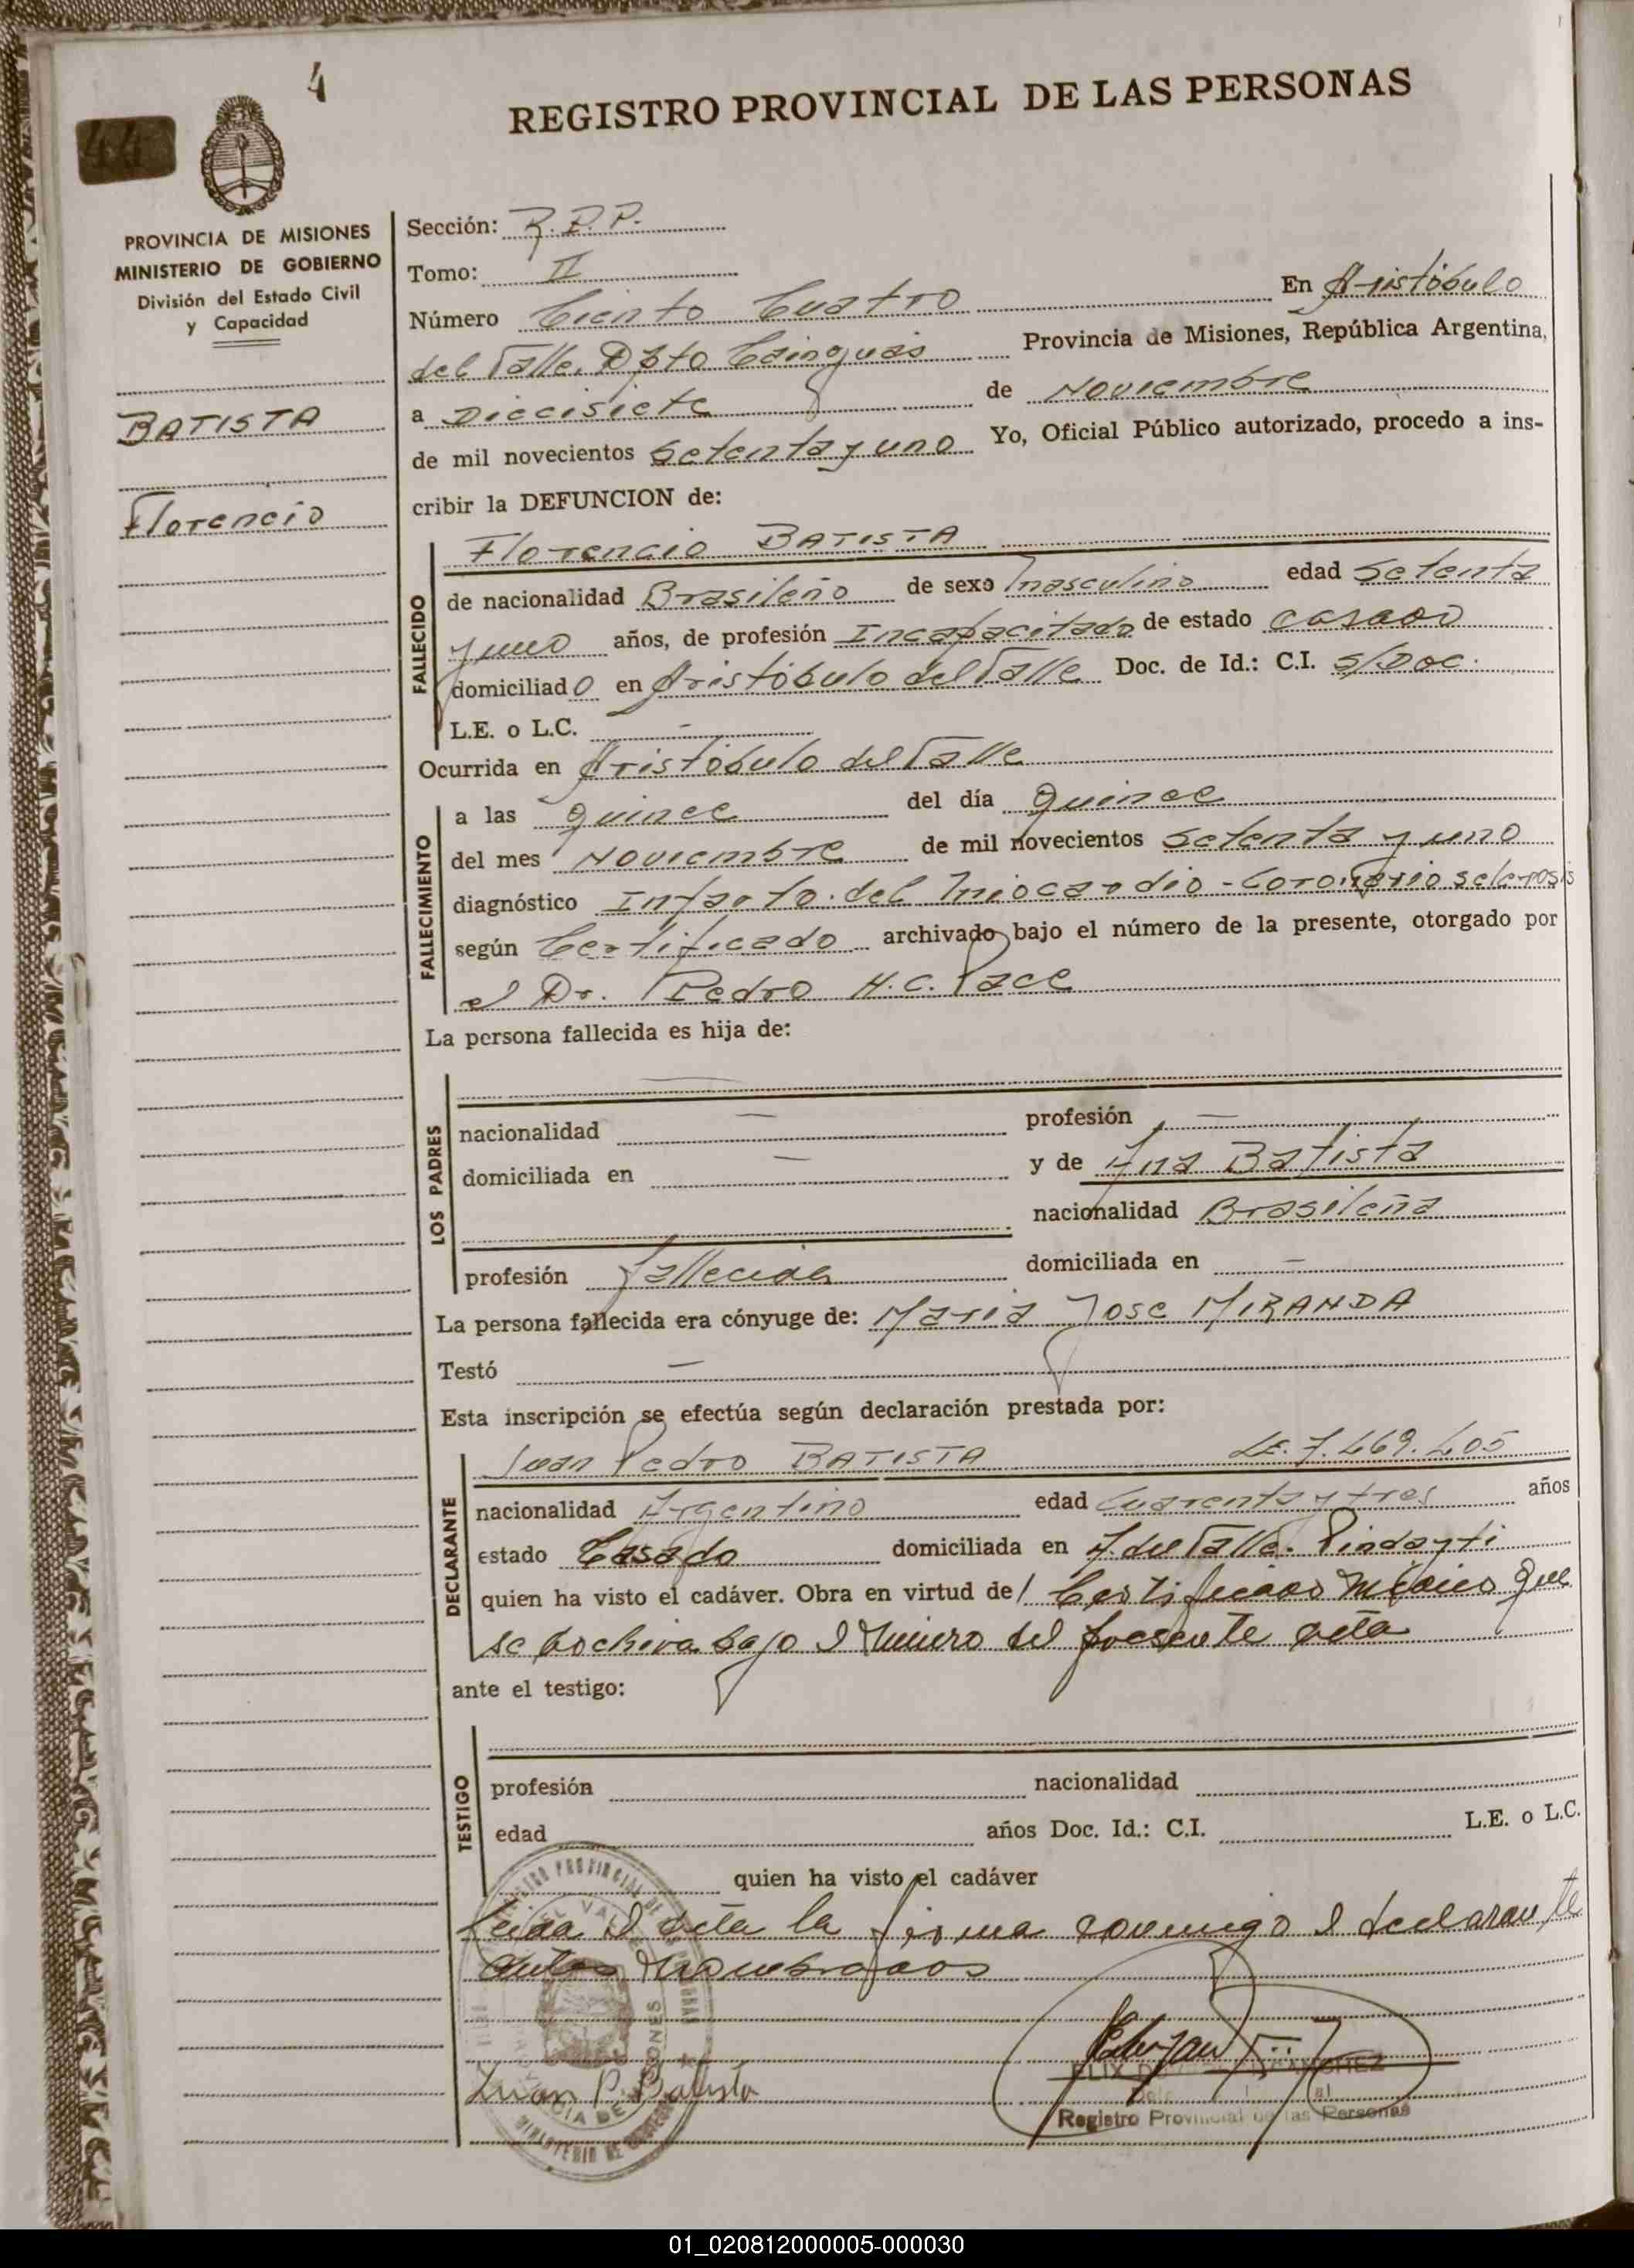 4
REGISTRO PROVINCIAL DE LAS PERSONAS
44
PROVINCIA DE MISIONES
MINISTERIO DE GOBIERNO
División del Estado Civil
y Capacidad
BATISTA
Florencio
Sección: R.P.P.
Tomo: II
Número Ciento Cuatro En Aristóbulo
del Valle. Dpto Cainguás Provincia de Misiones, República Argentina,
a Diecisiete de Noviembre
de mil novecientos Setenta y uno Yo, Oficial Público autorizado, procedo a ins-
cribir la DEFUNCION de:
FALLECIDO
Florencio BATISTA
de nacionalidad Brasileño de sexo masculino edad Setenta
y uno años, de profesión Incapacitado de estado casado
domiciliado en Aristóbulo del Valle Doc. de Id.: C.I. S/Doc.
L.E. o L.C. -
Ocurrida en Aristóbulo del Valle
FALLECIMIENTO
a las quince del día quince
del mes Noviembre de mil novecientos Setenta y uno
diagnóstico Infarto del Miocardio - Coronarioesclerosis
según Certificado archivado bajo el número de la presente, otorgado por
el Dr. Pedro H.C. Pace
La persona fallecida es hija de:
LOS PADRES
—
nacionalidad — profesión —
domiciliada en — y de Ana Batista
nacionalidad Brasileña
profesión fallecida domiciliada en —
La persona fallecida era cónyuge de: Maria Jose MIRANDA
Testó —
Esta inscripción se efectúa según declaración prestada por:
DECLARANTE
Juan Pedro BATISTA LE. 7.469.405
nacionalidad Argentino edad Cuarenta y tres años
estado Casado domiciliada en A. del Valle. Pindayti
quien ha visto el cadáver. Obra en virtud de/ Certificado Médico que
se archiva bajo el Número del presente acta
ante el testigo:
TESTIGO
profesión nacionalidad
edad años Doc. Id.: C.I. L.E. o L.C.
quien ha visto el cadáver
Leida el acta la firma conmigo el declarante
antes nombrados
Juan P. Batista
Registro Provincial de las Personas
01_020812000005-000030